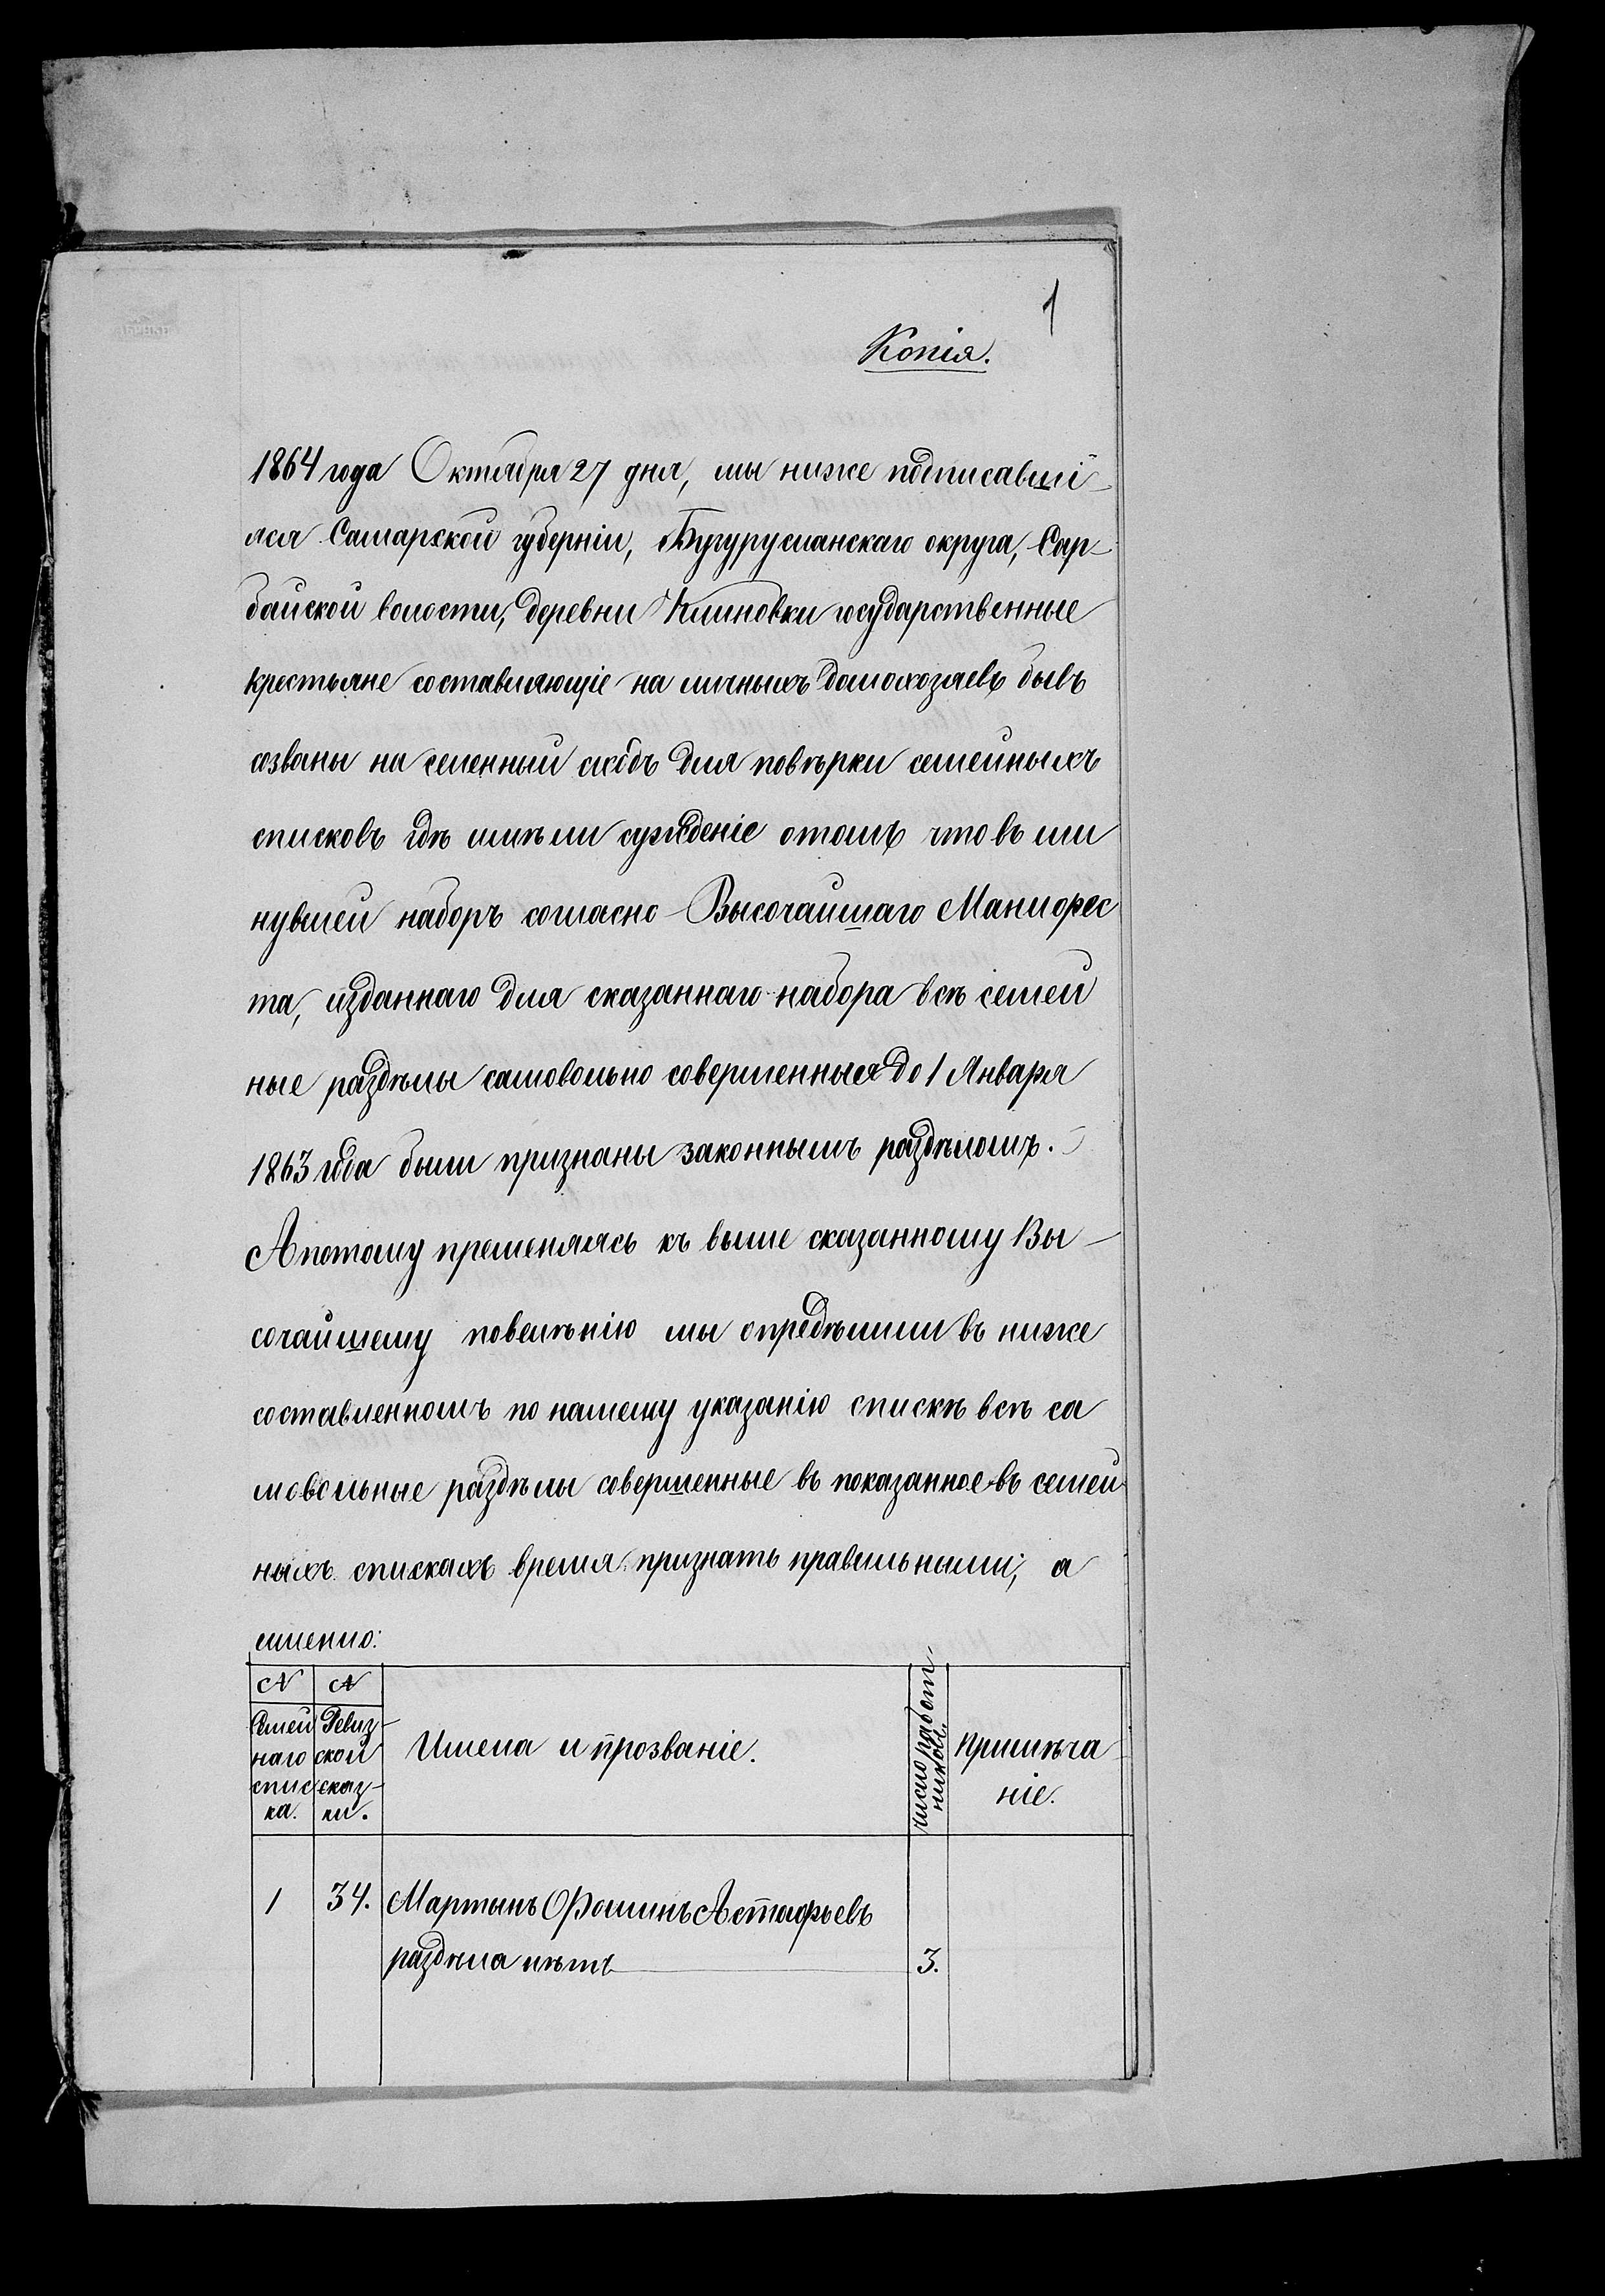 1
Копія.
1864 года Октября 27 дня, мы ниже подписавші-
яся Самарской губерніи, Бугурусланскаго округа, Сар-
байской волости, деревни Климовки государственные
крестьяне составляющіе на личныхъ домохозяевъ бывъ
созваны на селенный сходъ для повѣрки семейныхъ
списковъ гдѣ имѣли сужденіе отомъ что въ ми
нувшей наборъ согласно Высочайшаго Манифес
та, изданнаго для сказаннаго набора всѣ семей
ные раздѣлы самовольно совершенныя до 1 Января
1863 года были признаны законнымъ раздѣломъ.
А потому пременяясь къ выше сказанному Вы-
сочайшему повелѣнію мы опредѣлили въ ниже
составленномъ по нашему указанію спискѣ всѣ са
мовольные раздѣлы совершенные въ показанное въ семей
ныхъ спискахъ время признать правильными, а
именно:
N N
Семей Ревиз-
наго ской
спис сказ-
ка. ки.
Имена и прозваніе.
число работ-
никовъ.
Примѣча
ніе.
1 34. Мартынъ Фоминъ Астафьевъ
раздѣла нѣтъ 3.